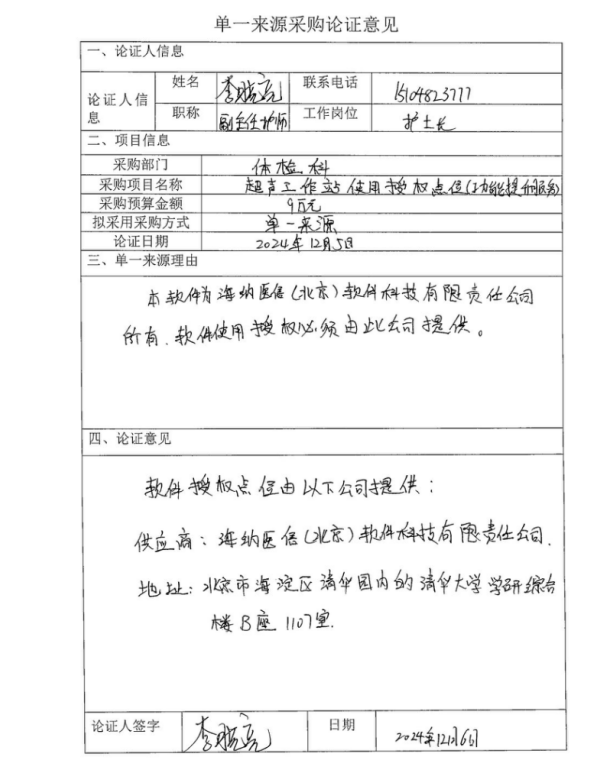 单一来源采购论证意见
一、论证人信息
论证人信息 姓名 李晓亮 联系电话 15104823777
职称 副主任护师 工作岗位 护士长
二、项目信息
采购部门 体检科
采购项目名称 超声工作站使用授权点位(功能提升服务)
采购预算金额 9万元
拟采用采购方式 单一来源
论证日期 2024年12月5日
三、单一来源理由
本软件为海纳医信(北京)软件科技有限责任公司
所有、软件使用授权必须由此公司提供。
四、论证意见
软件授权点位由以下公司提供:
供应商:海纳医信(北京)软件科技有限责任公司.
地址:北京市海淀区清华园内的清华大学学研综合
楼B座1107室.
论证人签字 李晓亮 日期 2024年12月6日